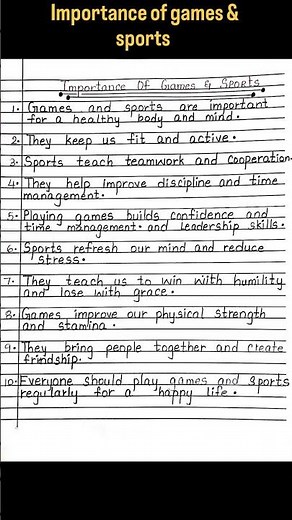 Importance of games &
sports
Importance Of Games & Sports
1. Games and sports are important
for a healthy body and mind.
2. They keep us fit and active.
3. Sports teach teamwork and cooperation.
4. They help improve discipline and time
management.
5. Playing games builds confidence and
time management. and leadership skills.
6. Sports refresh our mind and reduce
stress.
7. They teach us to win with humility
and lose with grace.
8. Games improve our physical strength
and stamina.
9. They bring people together and create
friendship.
10. Everyone should play games and sports
regularly for a happy life.